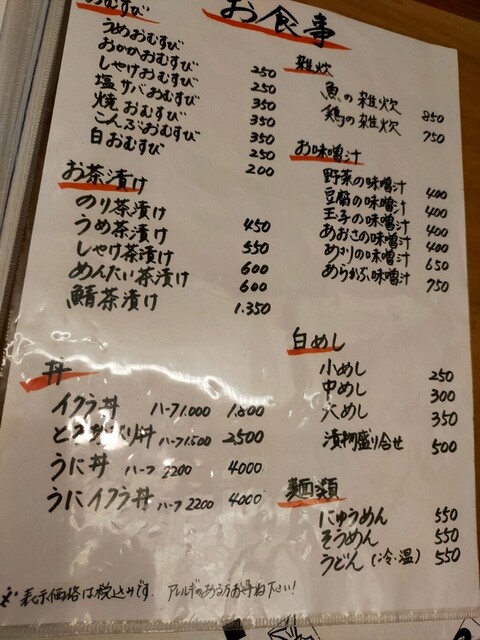 お食事
おむすび
うめおむすび 250
おかかおむすび 250
しゃけおむすび 350
塩サバおむすび 350
焼おむすび 350
こんぶおむすび 250
白おむすび 200
お茶漬け
のり茶漬け 450
うめ茶漬け 550
しゃけ茶漬け 600
めんたい茶漬け 600
鯖茶漬け 1.350
丼
イクラ丼 ハーフ1.000 1.800
丼 ハーフ1.500 2500
うに丼 ハーフ 2200 4000
うにイクラ丼 ハーフ 2200 4000
雑炊
魚の雑炊 850
鶏の雑炊 750
お味噌汁
野菜の味噌汁 400
豆腐の味噌汁 400
玉子の味噌汁 400
あおさの味噌汁 400
あさりの味噌汁 650
あらかぶ味噌汁 750
白めし
小めし 250
中めし 300
大めし 350
漬物盛り合せ 500
麺類
にゅうめん 550
そうめん 550
うどん(冷、温) 550
※表示価格は税込みです。アレルギーのある方お尋ね下さい!